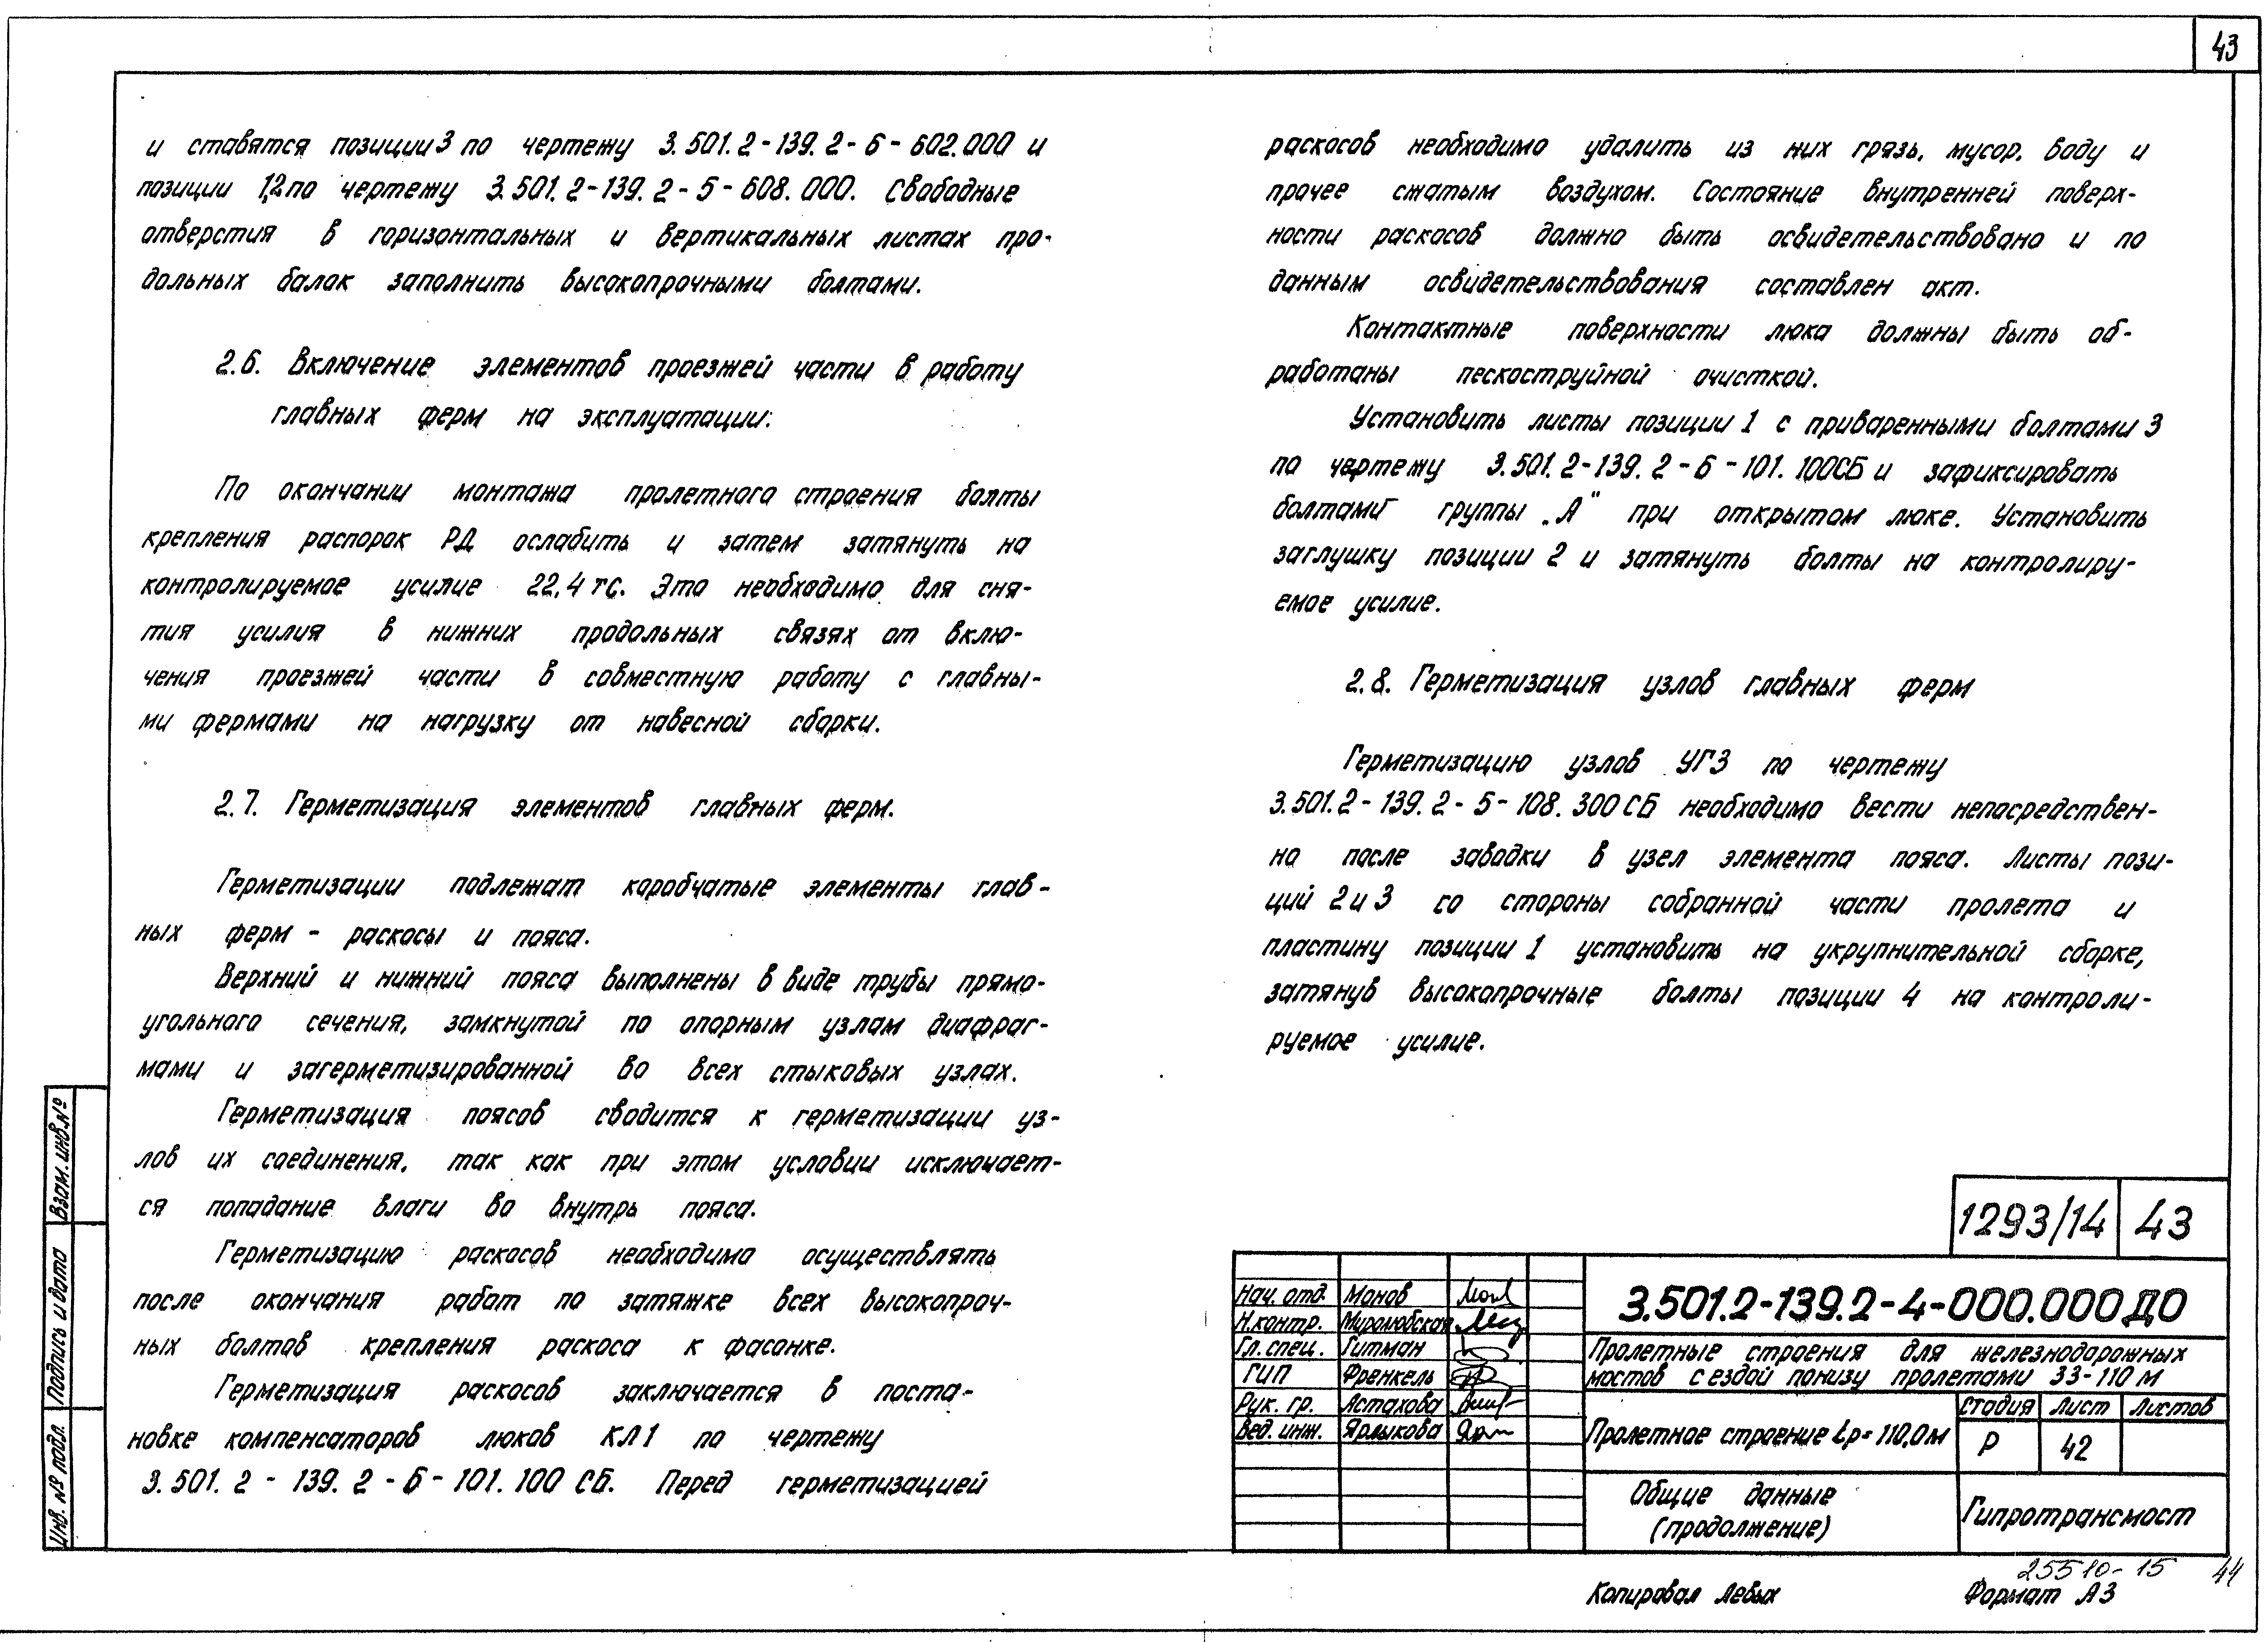 43
и ставятся позиции 3 по чертежу 3.501.2-139.2-6-602.000 и
позиции 1,2 по чертежу 3.501.2-139.2-5-608.000. Свободные
отверстия в горизонтальных и вертикальных листах про-
дольных балок заполнить высокопрочными болтами.
2.6. Включение элементов проезжей части в работу
главных ферм на эксплуатации:
По окончании монтажа пролетного строения болты
крепления распорок РД ослабить и затем затянуть на
контролируемое усилие 22,4 тс. Это необходимо для сня-
тия усилия в нижних продольных связях от вклю-
чения проезжей части в совместную работу с главны-
ми фермами на нагрузку от навесной сборки.
2.7. Герметизация элементов главных ферм.
Герметизации подлежат коробчатые элементы глав-
ных ферм - раскосы и пояса.
Верхний и нижний пояса выполнены в виде трубы прямо-
угольного сечения, замкнутой по опорным узлам диафраг-
мами и загерметизированной во всех стыковых узлах.
Герметизация поясов сводится к герметизации уз-
лов их соединения, так как при этом условии исключает-
ся попадание влаги во внутрь пояса.
Герметизацию раскосов необходимо осуществлять
после окончания работ по затяжке всех высокопроч-
ных болтов крепления раскоса к фасонке.
Герметизация раскосов заключается в поста-
новке компенсаторов люков КЛ1 по чертежу
3.501.2-139.2-6-101.100 СБ. Перед герметизацией
раскосов необходимо удалить из них грязь, мусор, воду и
прочее сжатым воздухом. Состояние внутренней поверх-
ности раскосов должно быть освидетельствовано и по
данным освидетельствования составлен акт.
Контактные поверхности люка должны быть об-
работаны пескоструйной очисткой.
Установить листы позиции 1 с приваренными болтами 3
по чертежу 3.501.2-139.2-6-101.100СБ и зафиксировать
болтами группы „А" при открытом люке. Установить
заглушку позиции 2 и затянуть болты на контролиру-
емое усилие.
2.8. Герметизация узлов главных ферм
Герметизацию узлов УГ3 по чертежу
3.501.2-139.2-5-108.300 СБ необходимо вести непосредствен-
но после заводки в узел элемента пояса. Листы пози-
ций 2 и 3 со стороны собранной части пролета и
пластину позиции 1 установить на укрупнительной сборке,
затянув высокопрочные болты позиции 4 на контроли-
руемое усилие.
Взам. инв.№
Подпись и дата
Инв. № подл.
1293/14 43
3.501.2-139.2-4-000.000 ДО
Нач. отд. Монов
Н.контр. Миромобская
Гл. спец. Гитман
ГИП Френкель
Рук. гр. Астахова
Вед. инж. Ярлыкова
Пролетные строения для железнодорожных
мостов с ездой понизу пролетами 33-110 м
Пролетное строение Lp=110,0м
Стадия Лист Листов
Р 42
Общие данные
(продолжение)
Гипротрансмост
25510-15 44
Копировал Левых Формат А3